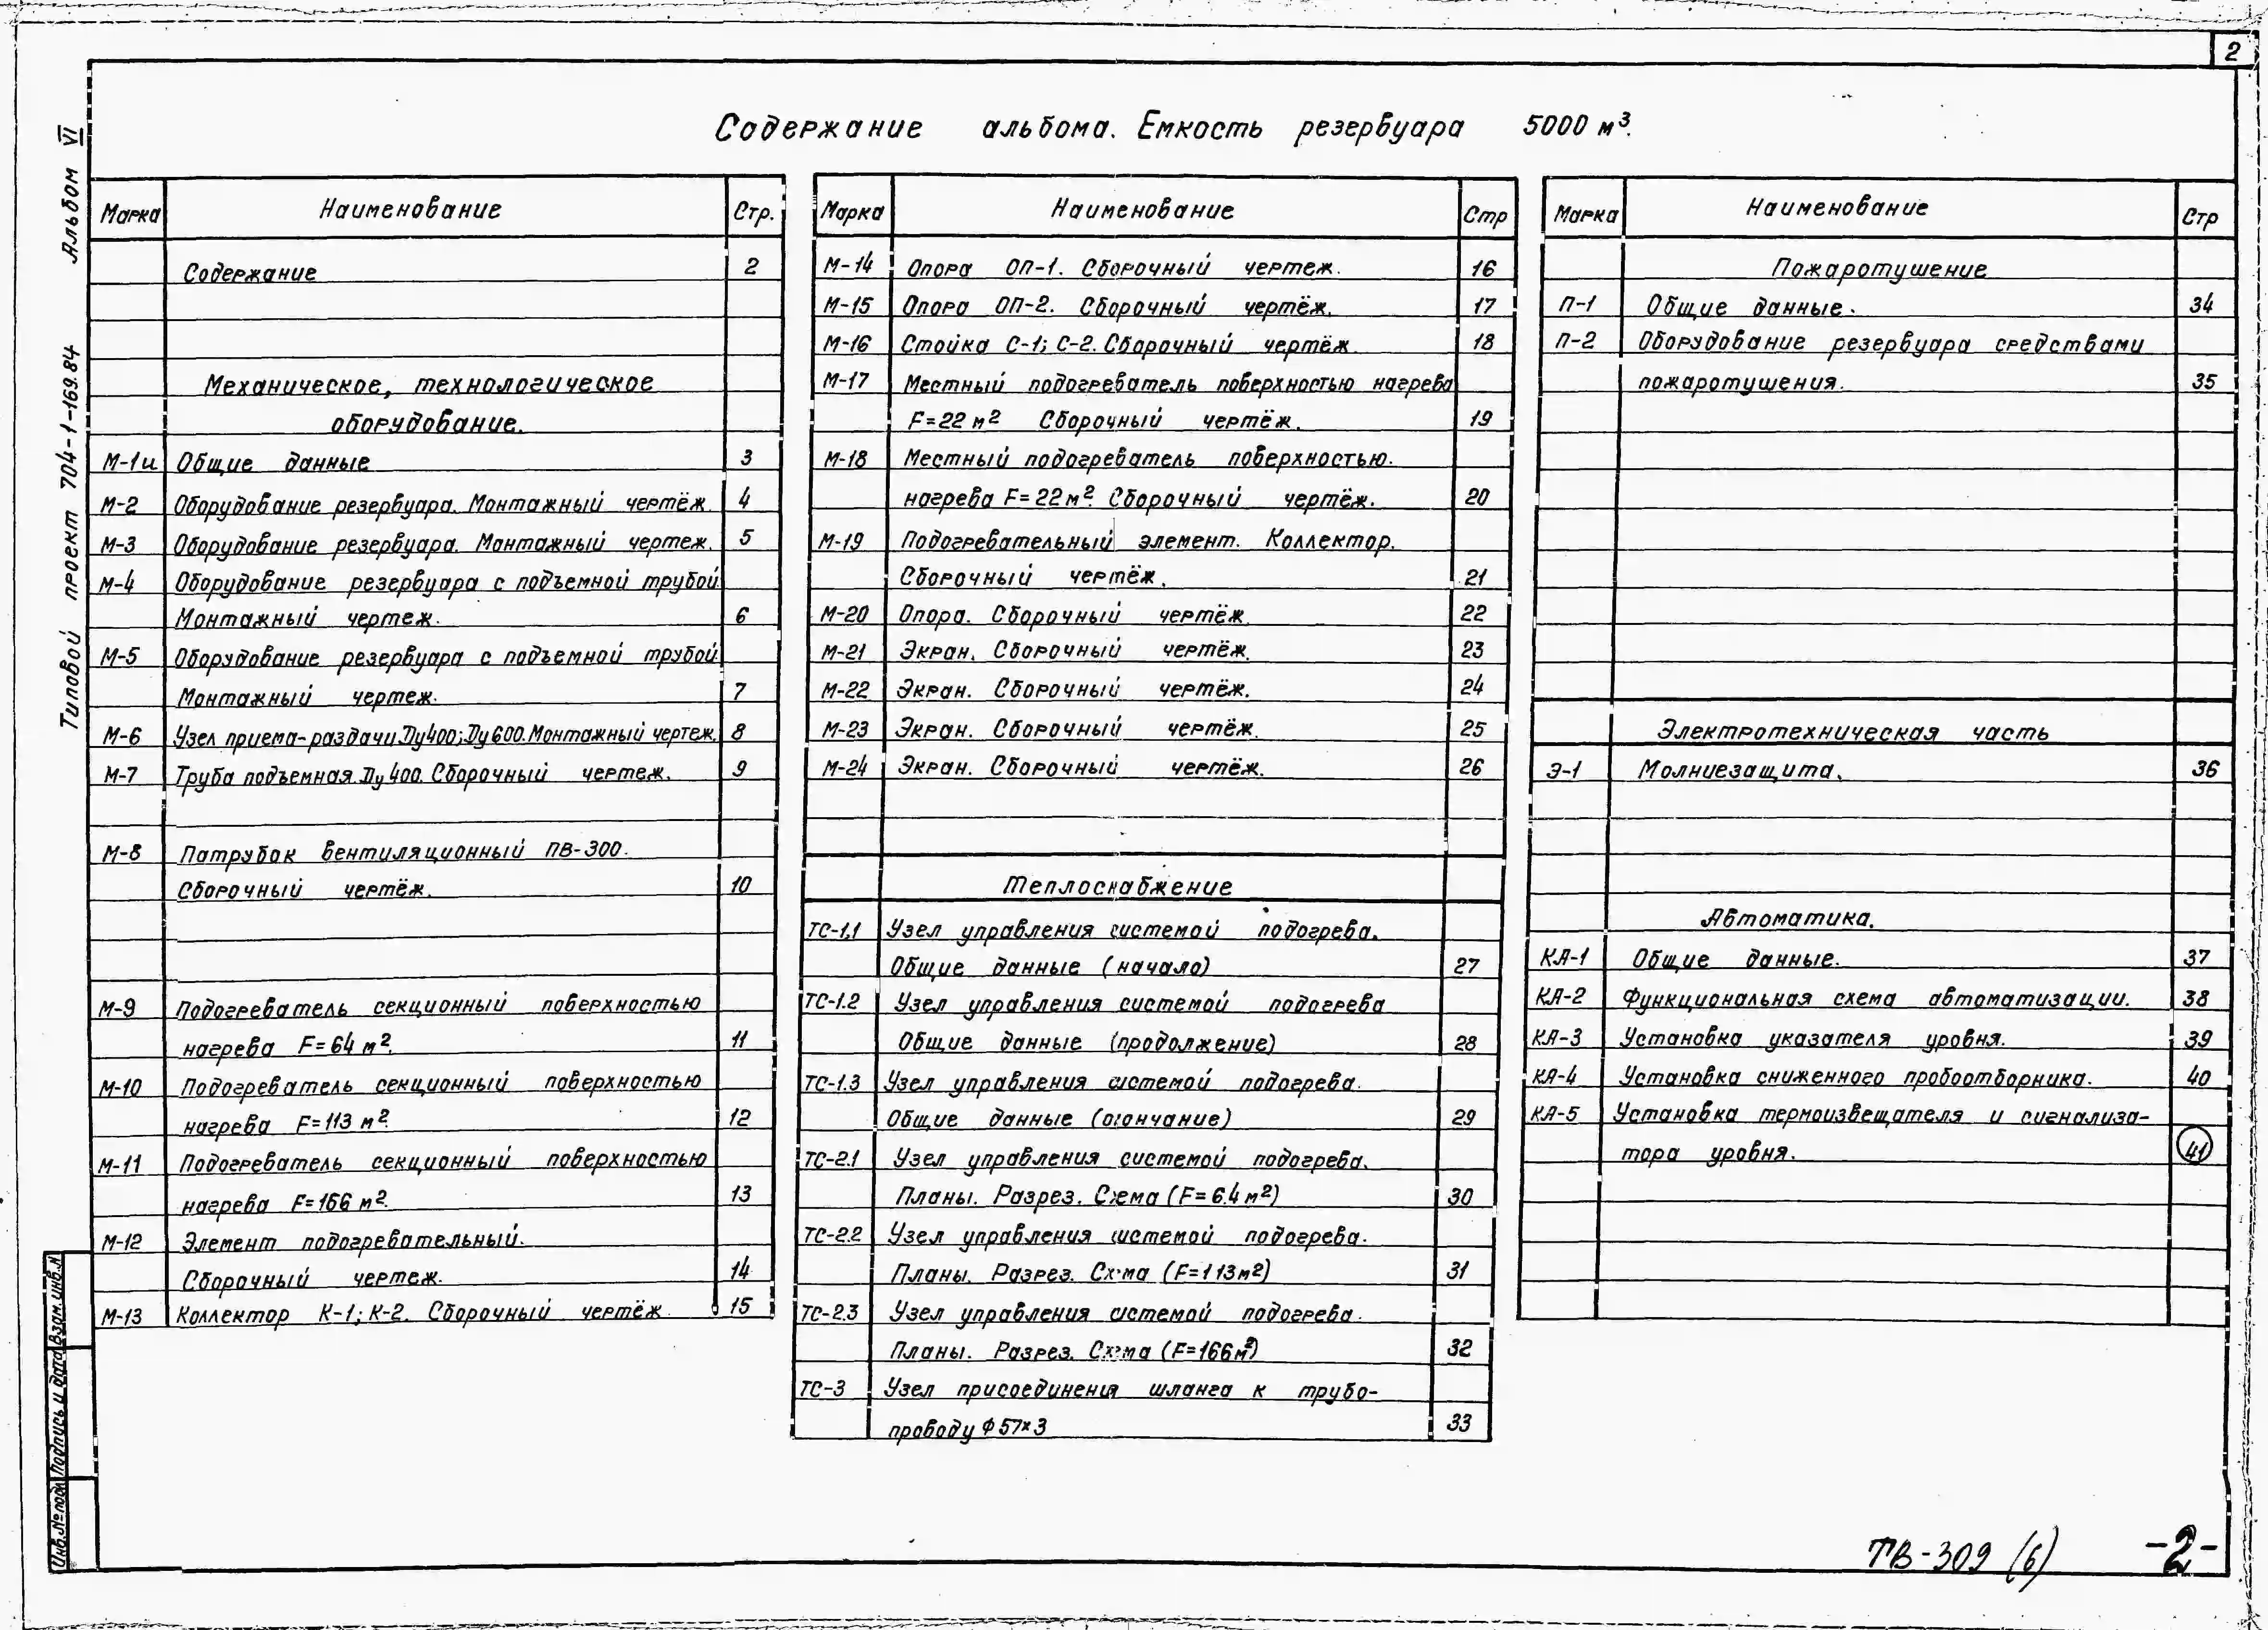 2
Содержание альбома. Емкость резервуара 5000 м³.
Альбом VI
Типовой проект 704-1-169.84
Марка Наименование Стр.
Содержание 2
Механическое, технологическое
оборудование.
М-1и Общие данные 3
М-2 Оборудование резервуара. Монтажный чертёж 4
М-3 Оборудование резервуара. Монтажный чертеж. 5
М-4 Оборудование резервуара с подъемной трубой.
Монтажный чертеж. 6
М-5 Оборудование резервуара с подъемной трубой.
Монтажный чертеж. 7
М-6 Узел приема-раздачи Ду400; Ду600. Монтажный чертеж. 8
М-7 Труба подъемная Ду 400. Сборочный чертеж. 9
М-8 Патрубок вентиляционный ПВ-300.
Сборочный чертёж. 10
М-9 Подогреватель секционный поверхностью
нагрева F=64 м². 11
М-10 Подогреватель секционный поверхностью
нагрева F=113 м². 12
М-11 Подогреватель секционный поверхностью
нагрева F=166 м². 13
М-12 Элемент подогревательный.
Сборочный чертеж. 14
М-13 Коллектор К-1; К-2. Сборочный чертёж. 15
Марка Наименование Стр
М-14 Опора ОП-1. Сборочный чертеж. 16
М-15 Опора ОП-2. Сборочный чертёж. 17
М-16 Стойка С-1; С-2. Сборочный чертёж. 18
М-17 Местный подогреватель поверхностью нагрева
F=22 м² Сборочный чертёж. 19
М-18 Местный подогреватель поверхностью.
нагрева F=22 м². Сборочный чертёж. 20
М-19 Подогревательный элемент. Коллектор.
Сборочный чертёж. 21
М-20 Опора. Сборочный чертёж. 22
М-21 Экран. Сборочный чертёж. 23
М-22 Экран. Сборочный чертёж. 24
М-23 Экран. Сборочный чертёж. 25
М-24 Экран. Сборочный чертёж. 26
Теплоснабжение
ТС-1.1 Узел управления системой подогрева.
Общие данные (начало) 27
ТС-1.2 Узел управления системой подогрева
Общие данные (продолжение) 28
ТС-1.3 Узел управления системой подогрева.
Общие данные (окончание) 29
ТС-2.1 Узел управления системой подогрева.
Планы. Разрез. Схема (F=6.4 м²) 30
ТС-2.2 Узел управления системой подогрева.
Планы. Разрез. Схема (F=113 м²) 31
ТС-2.3 Узел управления системой подогрева.
Планы. Разрез. Схема (F=166 м²) 32
ТС-3 Узел присоединения шланга к трубо-
проводу Ф57×3 33
Марка Наименование Стр
Пожаротушение
П-1 Общие данные. 34
П-2 Оборудование резервуара средствами
пожаротушения. 35
Электротехническая часть
Э-1 Молниезащита. 36
Автоматика.
КА-1 Общие данные. 37
КА-2 Функциональная схема автоматизации. 38
КА-3 Установка указателя уровня. 39
КА-4 Установка сниженного пробоотборника. 40
КА-5 Установка термоизвещателя и сигнализа-
тора уровня. 41
Инв.№подл Подпись и дата Взам.инв.№
ТВ-309 (6) -2-